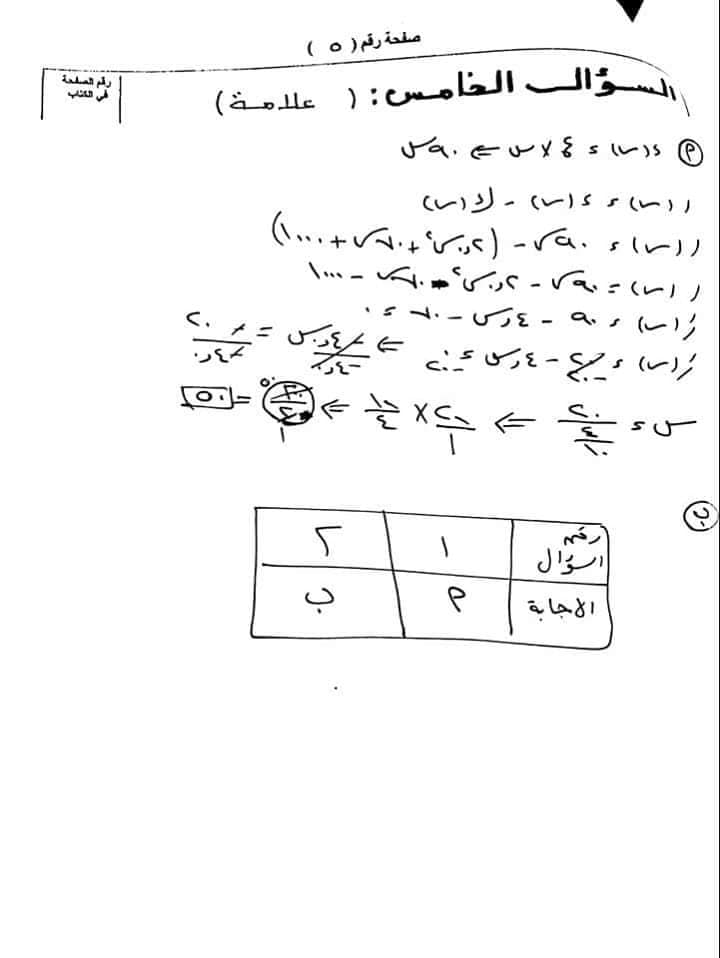 صفحة رقم ( ٥ )
رقم الصفحة في الكتاب
السؤال الخامس : ( علامة )
د(س) = ع × س ⇐ ٩٠س
ر(س) = د(س) - ك(س)
ر(س) = ٩٠س - (٢,٠س² + ٧٠س + ١٠٠٠)
ر(س) = ٩٠س - ٢,٠س² - ٧٠س - ١٠٠٠
رَ(س) = ٩٠ - ٤,٠س - ٧٠ = ٠
رَ(س) = ٢٠ - ٤,٠س = ٠ ⇐ -٤,٠س / -٤,٠ = -٢٠ / -٤,٠
س = ٢٠ / ٤/١٠ ⇐ ٢٠/١ × ١٠/٤ ⇐ = ٥٠
ب
رقم السؤال ١ ٢
الاجابة م ب